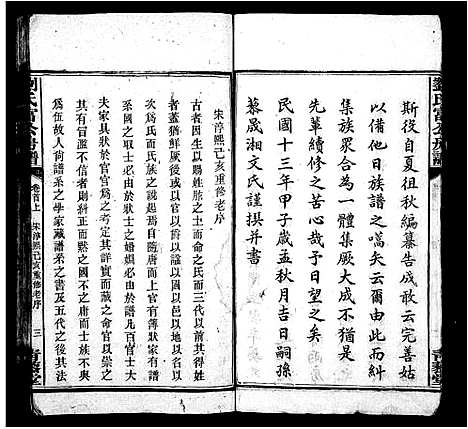 斯役自夏徂秋編纂告成敢云完善姑
以備他日族譜之嚆矢云爾由此而糾
集族衆合為一體集厥大成不猶有
先輩續修之苦心哉予日望之矣
民國十三年甲子歲孟秋月吉日嗣孫
慕晟湘文氏謹撰并書
劉氏富公房譜
宋淳熙己亥重修老序
古者因生以賜姓胙之土而命之氏而三代以前其得姓
蓋猶鮮厥後或以官以爵以謚以字或以國以地於是
次為氏而氏族始繁而隋唐而上官有簿狀家有譜
系官之選舉必由於狀士之婚姻必由於譜凡百官士大
夫家具以狀上於官官為之考定詳實而藏之家命
其有冒濫不信者則糾正而黜之國不與唐而士族不與
為伍故人尚譜系之學家藏譜系之書及五代之後其法
劉氏富公房譜
卷首上
宋淳熙己亥重修老序
三
青藜堂